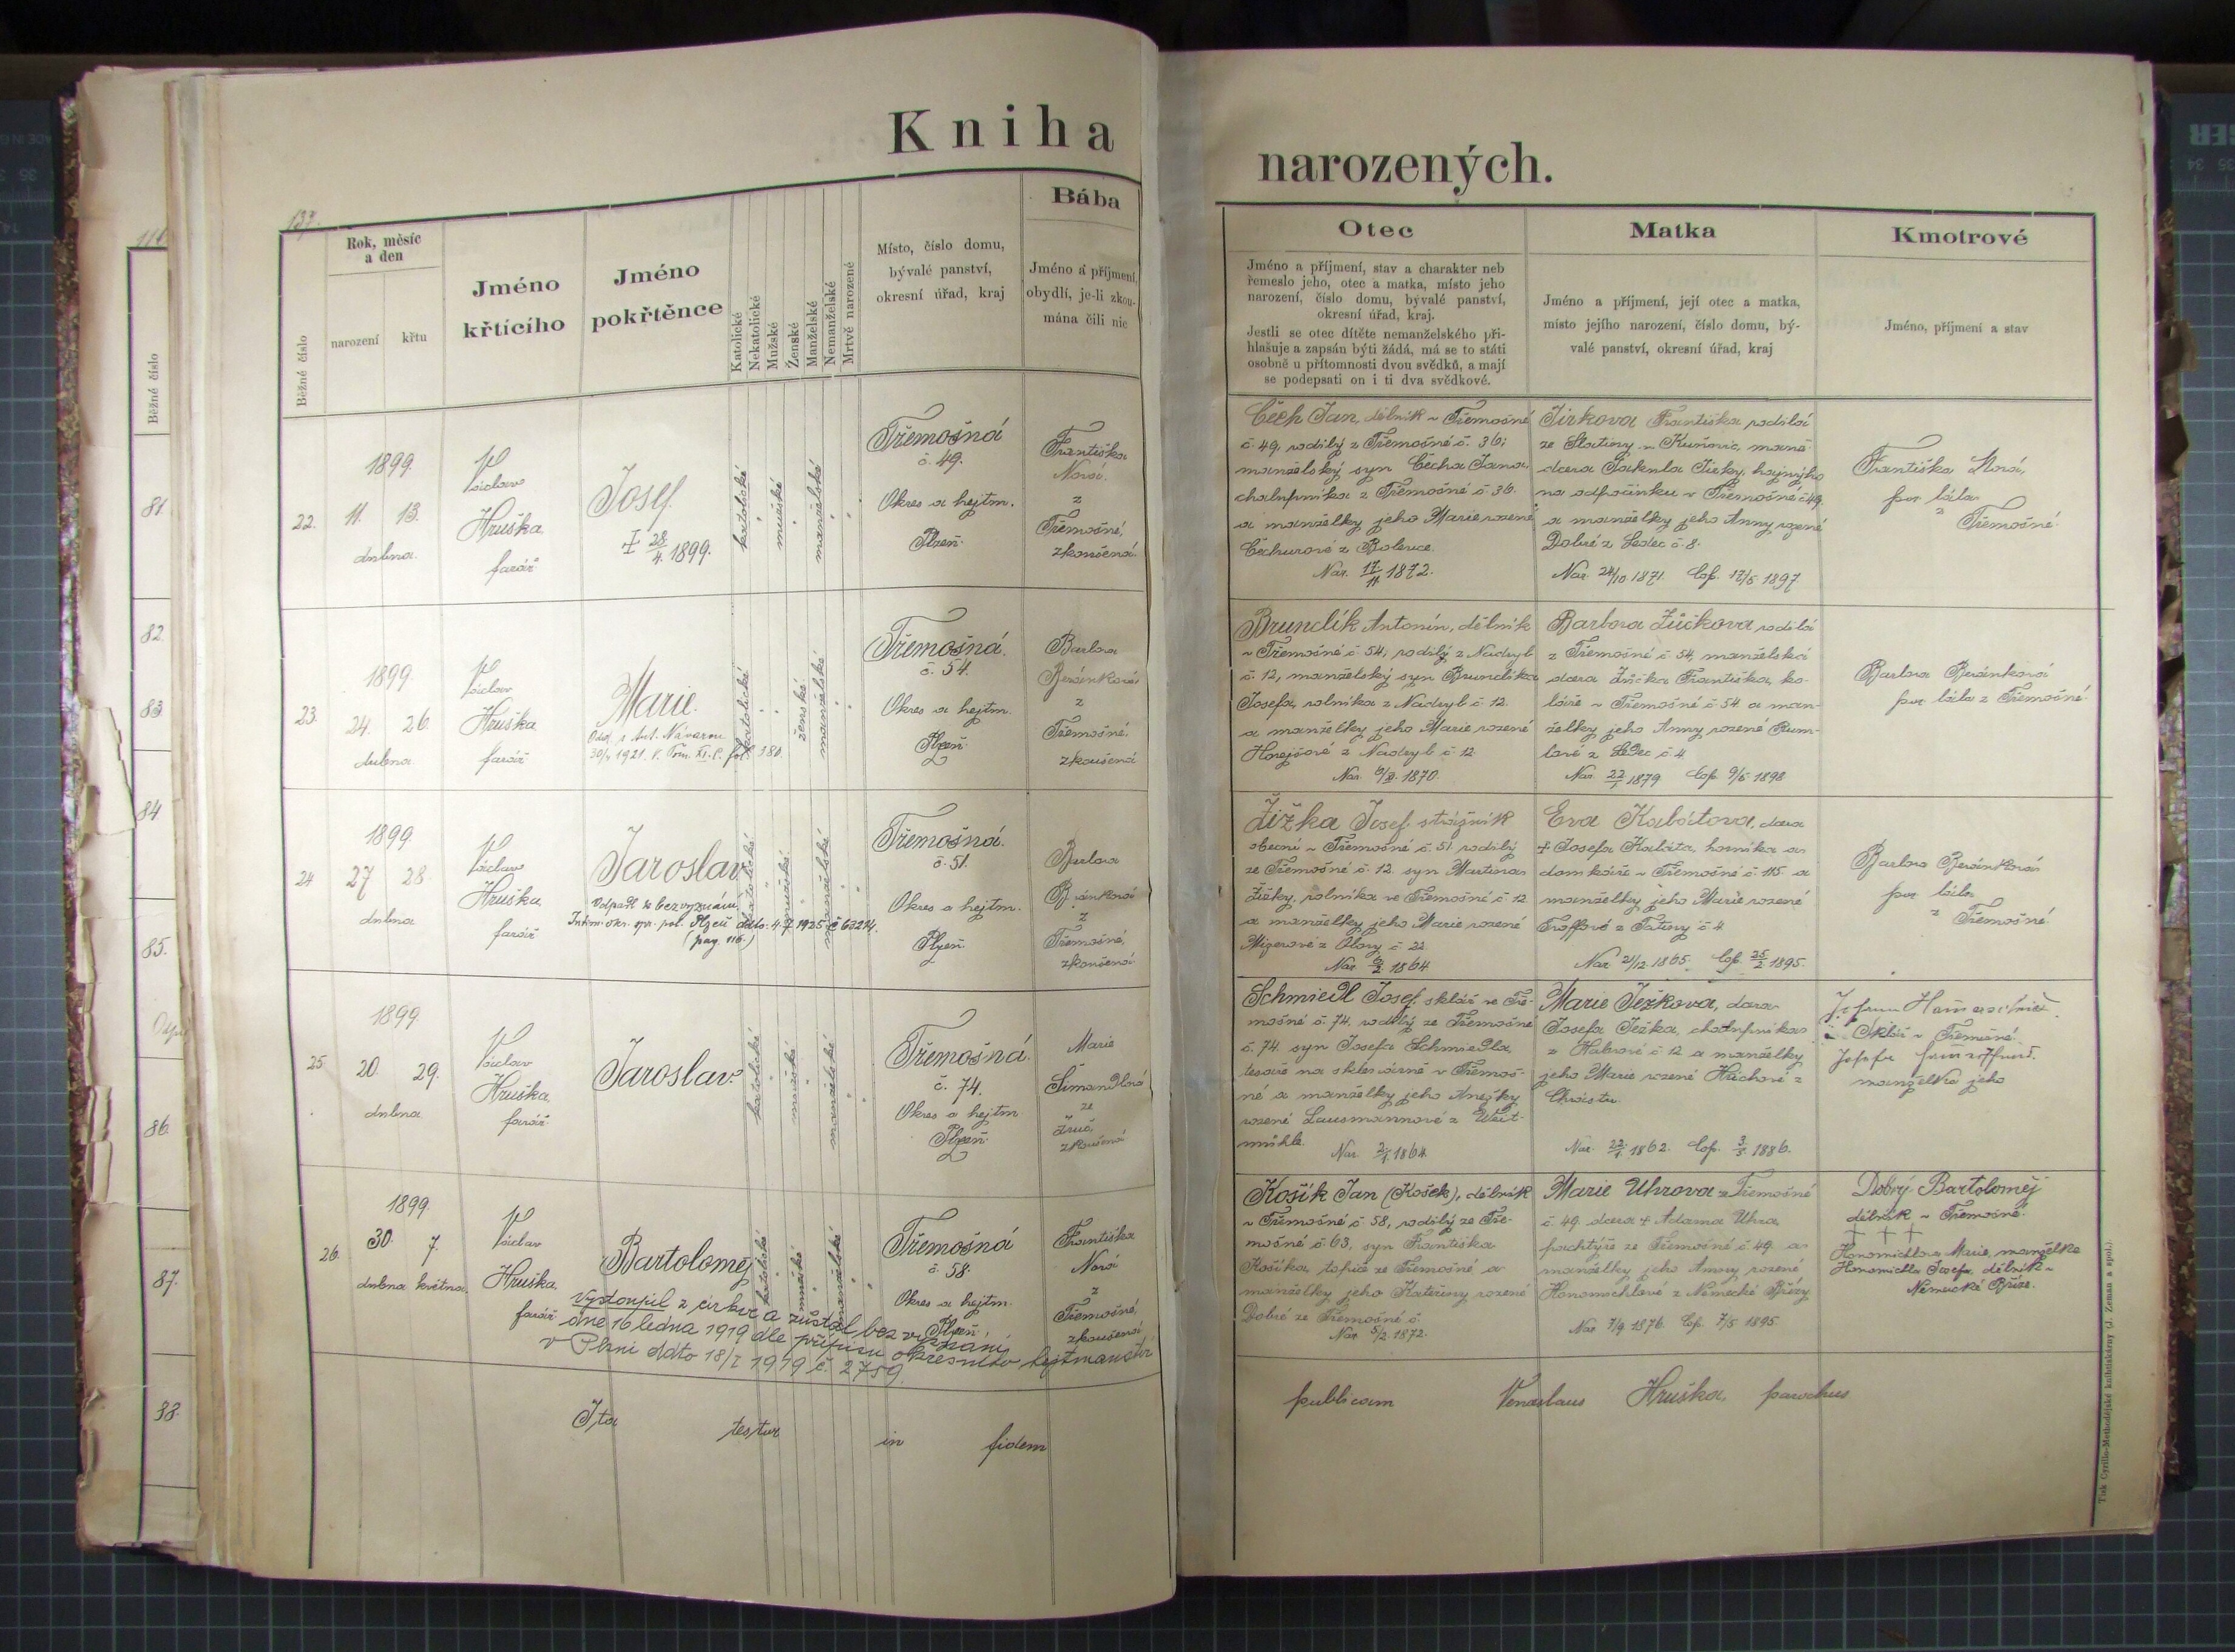 Kniha narozených.
137.
Běžné číslo
Rok, měsíc
a den
narození
křtu
Jméno
křtícího
Jméno
pokřtěnce
Katolické
Nekatolické
Mužské
Ženské
Manželské
Nemanželské
Mrtvě narozené
Místo, číslo domu,
bývalé panství,
okresní úřad, kraj
Bába
Jméno a příjmení,
obydlí, je-li zkou-
mána čili nic
Otec
Jméno a příjmení, stav a charakter neb
řemeslo jeho, otec a matka, místo jeho
narození, číslo domu, bývalé panství,
okresní úřad, kraj.
Jestli se otec dítěte nemanželského při-
hlašuje a zapsán býti žádá, má se to státi
osobně u přítomnosti dvou svědků, a mají
se podepsati on i ti dva svědkové.
Matka
Jméno a příjmení, její otec a matka,
místo jejího narození, číslo domu, bý-
valé panství, okresní úřad, kraj
Kmotrové
Jméno, příjmení a stav
Běžné číslo
81.
82.
83.
84
85.
86.
87.
88.
22.
1899.
11. 13.
dubna.
Václav
Hruška,
farář
Josef.
† 28/4. 1899.
katolické
mužské
manželské
Třemošná
č. 49.
Okres a hejtm.
Plzeň.
Františka
Nová
z
Třemošné,
zkoušená.
Čech Jan, dělník v Třemošné
č. 49, rodilý z Třemošné č. 36;
manželský syn Čecha Jana,
chalupníka z Třemošné č 36.
a manželky jeho Marie rozené
Čechurové z Bolevce.
Nar. 17/11 1872.
Jirkova Františka rodilá
dcera Jakuba Jirky, hajného
na odpočinku v Třemošné č 49.
a manželky jeho Anny rozené
Dobré z Ledec č. 8.
Nar. 24/10 1871. Cop. 17/5 1897.
Františka Nová,
por. bába
z
Třemošné.
23.
1899.
24. 26.
dubna
Václav
Hruška
farář
Marie.
Odd. s Ant. Návarou
katolické
ženské
manželské
Třemošná.
č. 54.
Okres a hejtm.
Plzeň.
Barbora
Beránková
z
Třemošné,
zkoušená
Brundlík Antonín, dělník
v Třemošné č 54; rodilý z Nadryb
č. 12, manželský syn Brundlíka
Josefa, rolníka z Nadryb č 12.
a manželky jeho Marie rozené
Horejšové z Nadryb č 12
1870.
Barbora Žůčkova rodilá
z Třemošné č 54, manželská
dcera Žůčka Františka, ko-
láře v Třemošné č 54 a man-
želky jeho Anny rozené Bum-
lové z Ledec č 4.
Nar. 22/1 1879 Cop. 9/5 1898
Barbora Beránková
por. bába z Třemošné.
24
1899.
27 28.
dubna
Václav
Hruška
farář
Jaroslav.
Odpadl k bezvyznání
(pag. 116.)
katolické
mužské
manželské
Třemošná.
č. 51.
Okres a hejtm.
Plzeň.
Barbora
Beránková
z
Třemošné,
zkoušená
Žižka Josef, strážník
obecní v Třemošné č. 51 rodilý
ze Třemošné č. 12. syn Martina
Žižky, rolníka ve Třemošné č 12
a manželky jeho Marie rozené
1864
Eva Kabátova, dcera
† Josefa Kabáta, horníka a
domkáře v Třemošné č 115 a
manželky jeho Marie rozené
Nar 21/12 1865. Cop. 25/2 1895.
Barbora Beránková
por. bába
z Třemošné
25.
1899
20. 29.
dubna
Václav
Hruška,
farář.
Jaroslav.
katolické
mužské
manželské
Třemošná.
č. 74.
Okres a hejtm.
Plzeň.
Marie
Šimandlová
ze
Zruč,
zkoušená
Schmiedl Josef, sklář ve Tře-
mošné č. 74, rodilý ze Třemošné
č. 74. syn Josefa Schmiedla
tesaře na sklárně v Třemoš-
né a manželky jeho Anežky
rozené Lausmannové z Weit-
mühle.
Nar. 2/1 1864
Marie Ježkova, dcera
Josefa Ježka, chalupníka
z Habrové č 12 a manželky
jeho Marie rozené Hrachové z
Nar. 22/1 1862. Cop. 3/5 1886.
Sklář v Třemošné.
manželka jeho
26.
1899.
30. 7.
dubna května
Václav
Hruška,
farář
Bartoloměj
Vystoupil z církve a zůstal bez vyznání
dne 16 ledna 1919 dle přípisu okresního hejtmanství
v Plzni ddto 18/I 1919 č. 2759.
katolické
mužské
manželské
Třemošná
č. 58.
Okres a hejtm.
Plzeň.
Františka
Nová
z
Třemošné,
zkoušená
Košík Jan (Košek), dělník
v Třemošné č 58, rodilý ze Tře-
mošné č. 63, syn Františka
Košíka, topiče ze Třemošné a
manželky jeho Kateřiny rozené
Dobré ze Třemošné č.
Nar. 5/2. 1872.
Marie Uhrova z Třemošné
č. 49 dcera † Adama Uhra,
pachtýře ze Třemošné č 49 a
manželky jeho Anny rozené
Honomichlové z Německé Břízy.
Nar 7/9 1876. Cop. 7/5 1895.
Dobrý Bartoloměj
dělník v Třemošné.
† † †
Honomichlova Marie, manželka
Honomichla Josefa, dělník v
Německé Bříze.
Ita testor in fidem publicam Venceslaus Hruška, parochus
Tisk Cyrillo-Methodějské knihtiskárny (J. Zeman a spol.).